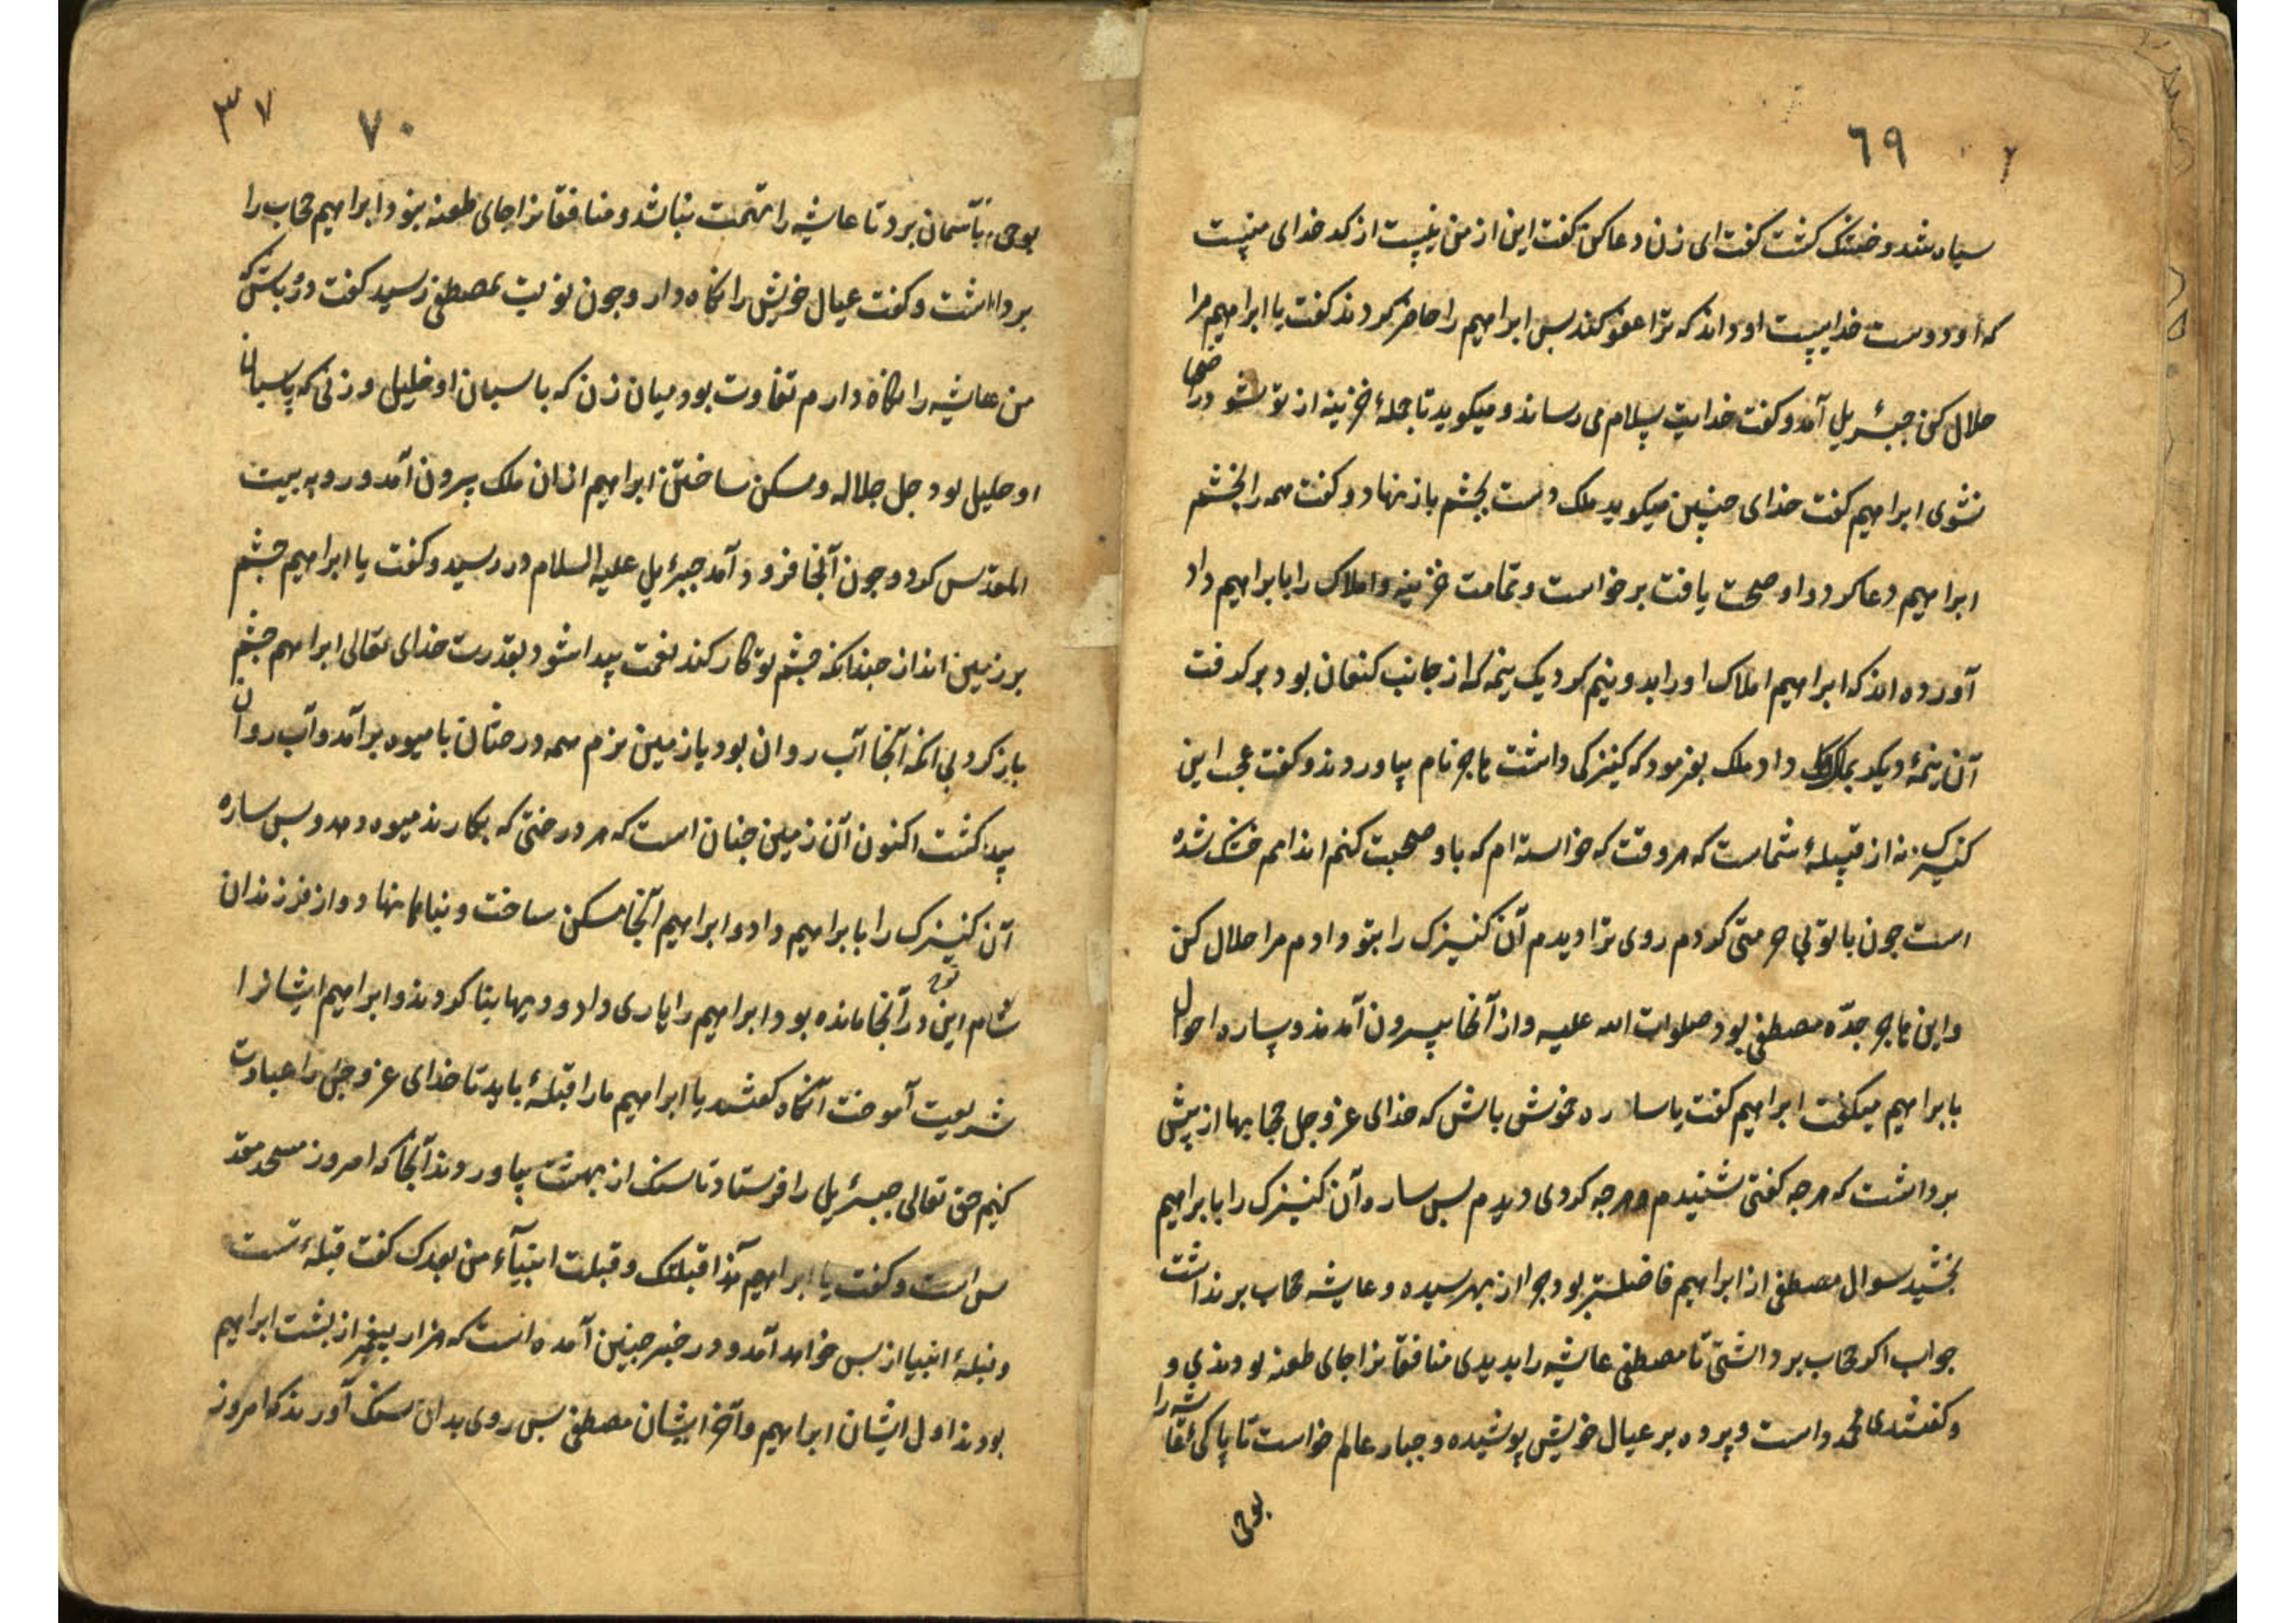 ٦٩
سیاه شد و خشک گشت گفت ای زن دعا کن گفت این از من نیست از کد خدای منست
که او دوست خدایست او داند که ترا عفو کند بس ابراهیم را حاضر کردند گفت یا ابراهیم مرا
حلال کن جبرئیل آمد و گفت خدایت سلام می رساند و میکوید تا جملهٔ خزینه از تو نشود راضی
نشوی ابراهیم گفت خدای چنین میکوید ملک دست بچشم باز نهاد و گفت همه را بخشم
ابراهیم دعا کرد و او صحت یافت برخواست و تمامت خزینه و املاک را بابراهیم داد
آورده اند که ابراهیم املاک او را بدو نیم کرد یک نیمه که از جانب کنعان بود برگرفت
آن نیمهٔ دیکر بملک داد ملک بفرمود که کنیزکی داشت هاجر نام بیاوردند و گفت عجب این
کنیزک نه از قبیلهٔ شماست که هر وقت که خواسته ام که با و صحبت کنم اندامم خشک شده
است جون با تو بی حرمتی کردم روی ترا دیدم آن کنیزک را بتو دادم مرا حلال کن
و این هاجر جدّه مصطفی بود صلوات الله علیه و از آنجا بیرون آمدند و ساره احوال
بابراهیم میکفت ابراهیم گفت یا ساره خموش باش که خدای عز و جل حجابها از پیش
برداشت که هر جه گفتی شنیدم و هر جه کردی دیدم بس ساره آن کنیزک را بابراهیم
بخشید سوال مصطفی از ابراهیم فاضلتر بود جرا از بهر سیده عایشه حجاب برنداشت
جواب اکر حجاب برداشتی تا مصطفی عایشه را بدیدی منافقانرا جای طعنه بودندی و
و گفتندی محمد داست و پرده بر عیال خویش پوشیده و جبار عالم خواست تا پاکی عایشه را
بوحی
٣٧ ٧٠
بوحی بآسمان برد تا عایشه را تهمت نباشد و منافقانرا جای طعنه نبود ابراهیم حجاب را
برداشت و گفت عیال خویش را نگاه دار و جون نوبت بمصطفی رسید گفت دور باش که
من عایشه را نگاه دارم تفاوت بود میان زن که پاسبان او خلیل و زنی که پاسبان
او جلیل بود جل جلاله و مسکن ساختن ابراهیم از ان ملک بیرون آمد و رو به بیت
المقدس کرد و جون آنجا فرود آمد جبرئیل علیه السلام در رسید و گفت یا ابراهیم جشم
بر زمین انداز جندانکه جشم تو کار کند نعمت پیدا شود بقدرت خدای تعالی ابراهیم جشم
باز کرد بی انکه آنجا آب روان بود یا زمین نرم همه درختان با میوه برآمد و آب روان
پیدا گشت اکنون آن زمین جنان است که هر درختی که بکارند میوه دهد و بس ساره
آن کنیزک را بابراهیم داد و ابراهیم آنجا مسکن ساخت و بناها نهاد و از فرزندان
شام ابن نوح در آنجا مانده بود ابراهیم را یاری داد و دیهها بنا کردند و ابراهیم ایشانرا
شریعت آموخت آنکاه گفتند یا ابراهیم ما را قبلهٔ باید تا خدای عز و جل را عبادت
کنیم حق تعالی جبرئیل را فرستاد تا سنک از بهشت بیاوردند آنجا که امروز مسجد مقد
س است و گفت یا ابراهیم هذا قبلتک و قبلت انبیآء من بعدک گفت قبلهٔ تست
و قبلهٔ انبیا از بس خواهد آمد و در خبر جنین آمده است که هزار پیغمبر از پشت ابراهیم
بودند اول ایشان ابراهیم و آخر ایشان مصطفی بس روی بدان سنک آوردند که امروز